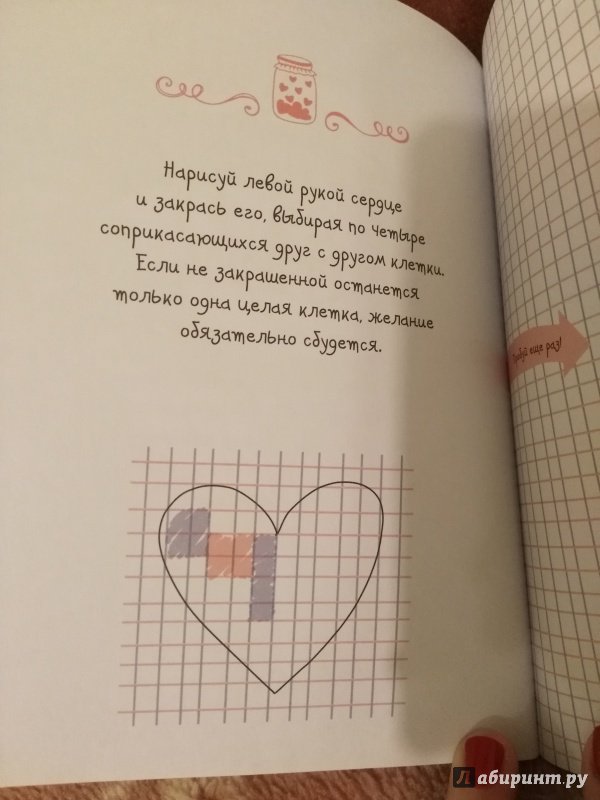 Нарисуй левой рукой сердце
и закрась его, выбирая по четыре
соприкасающихся друг с другом клетки.
Если не закрашенной останется
только одна целая клетка, желание
обязательно сбудется.
Пробуй еще раз!
Лабиринт.ру